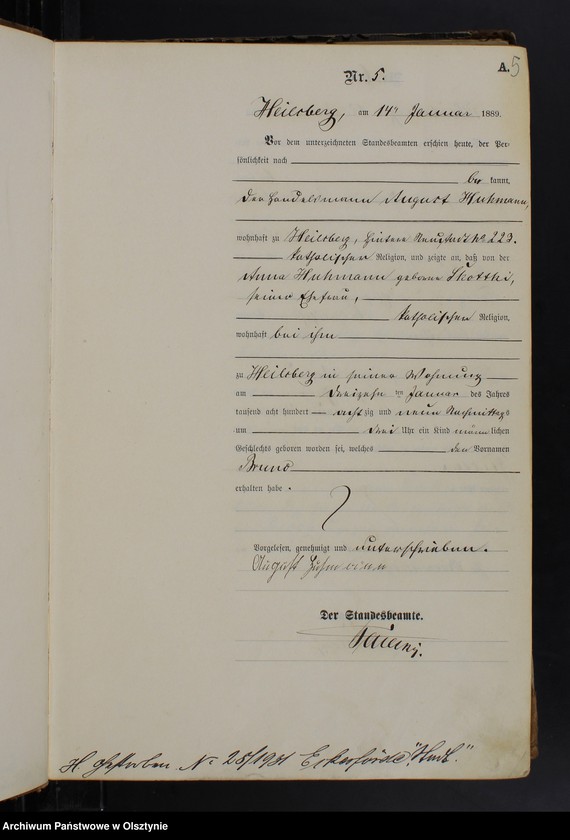 A. 5
Nr. 5.
Heilsberg, am 14ten Januar 1889.
Vor dem unterzeichneten Standesbeamten erschien heute, der Per-
sönlichkeit nach
be kannt,
der Handelsmann August Huhmann,
wohnhaft zu Heilsberg, hintere Neustadt No 223.
katholischer Religion, und zeigte an, daß von der
Anna Huhmann geborne
seiner Ehefrau,
katholischen Religion,
wohnhaft bei ihm
zu Heilsberg in seiner Wohnung
am dreizehn ten Januar des Jahres
tausend acht hundert achtzig und neun Nachmittags
um drei Uhr ein Kind männlichen
Geschlechts geboren worden sei, welches den Vornamen
Bruno
erhalten habe.
Vorgelesen, genehmigt und unterschrieben.
August Huhmann
Der Standesbeamte.
H. Gestorben Nr 25/1931
Archiwum Państwowe w Olsztynie